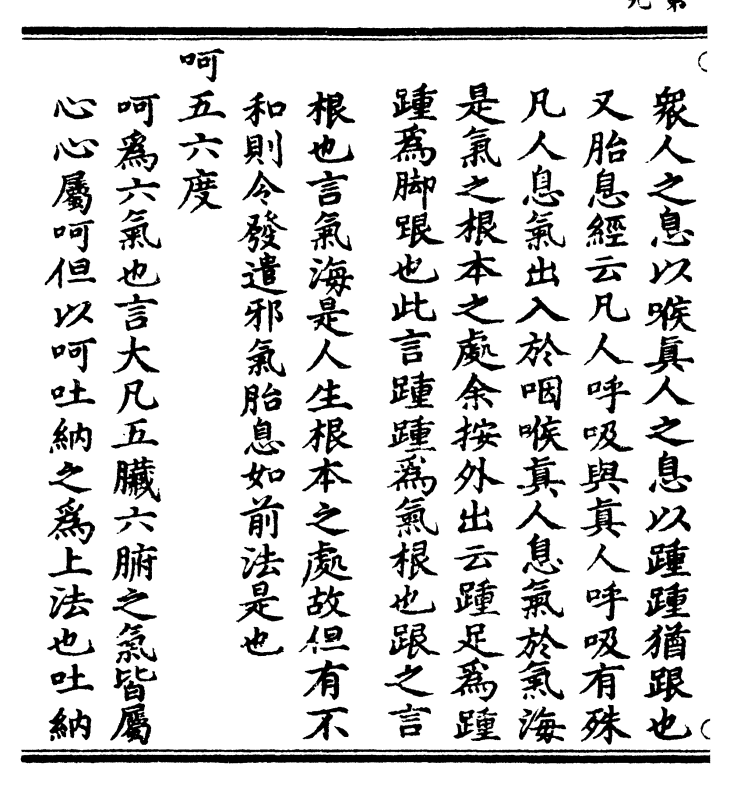 衆人之息以喉真人之息以踵踵猶跟也
又胎息經云凡人呼吸與真人呼吸有殊
凡人息氣出入於咽喉真人息氣於氣海
是氣之根本之處余按外出云踵足爲踵
踵爲脚跟也此言踵踵爲氣根也跟之言
根也言氣海是人生根本之處故但有不
和則令發遣邪氣胎息如前法是也
呵五六度
呵爲六氣也言大凡五臟六腑之氣皆屬
心心屬呵但以呵吐納之爲上法也吐納